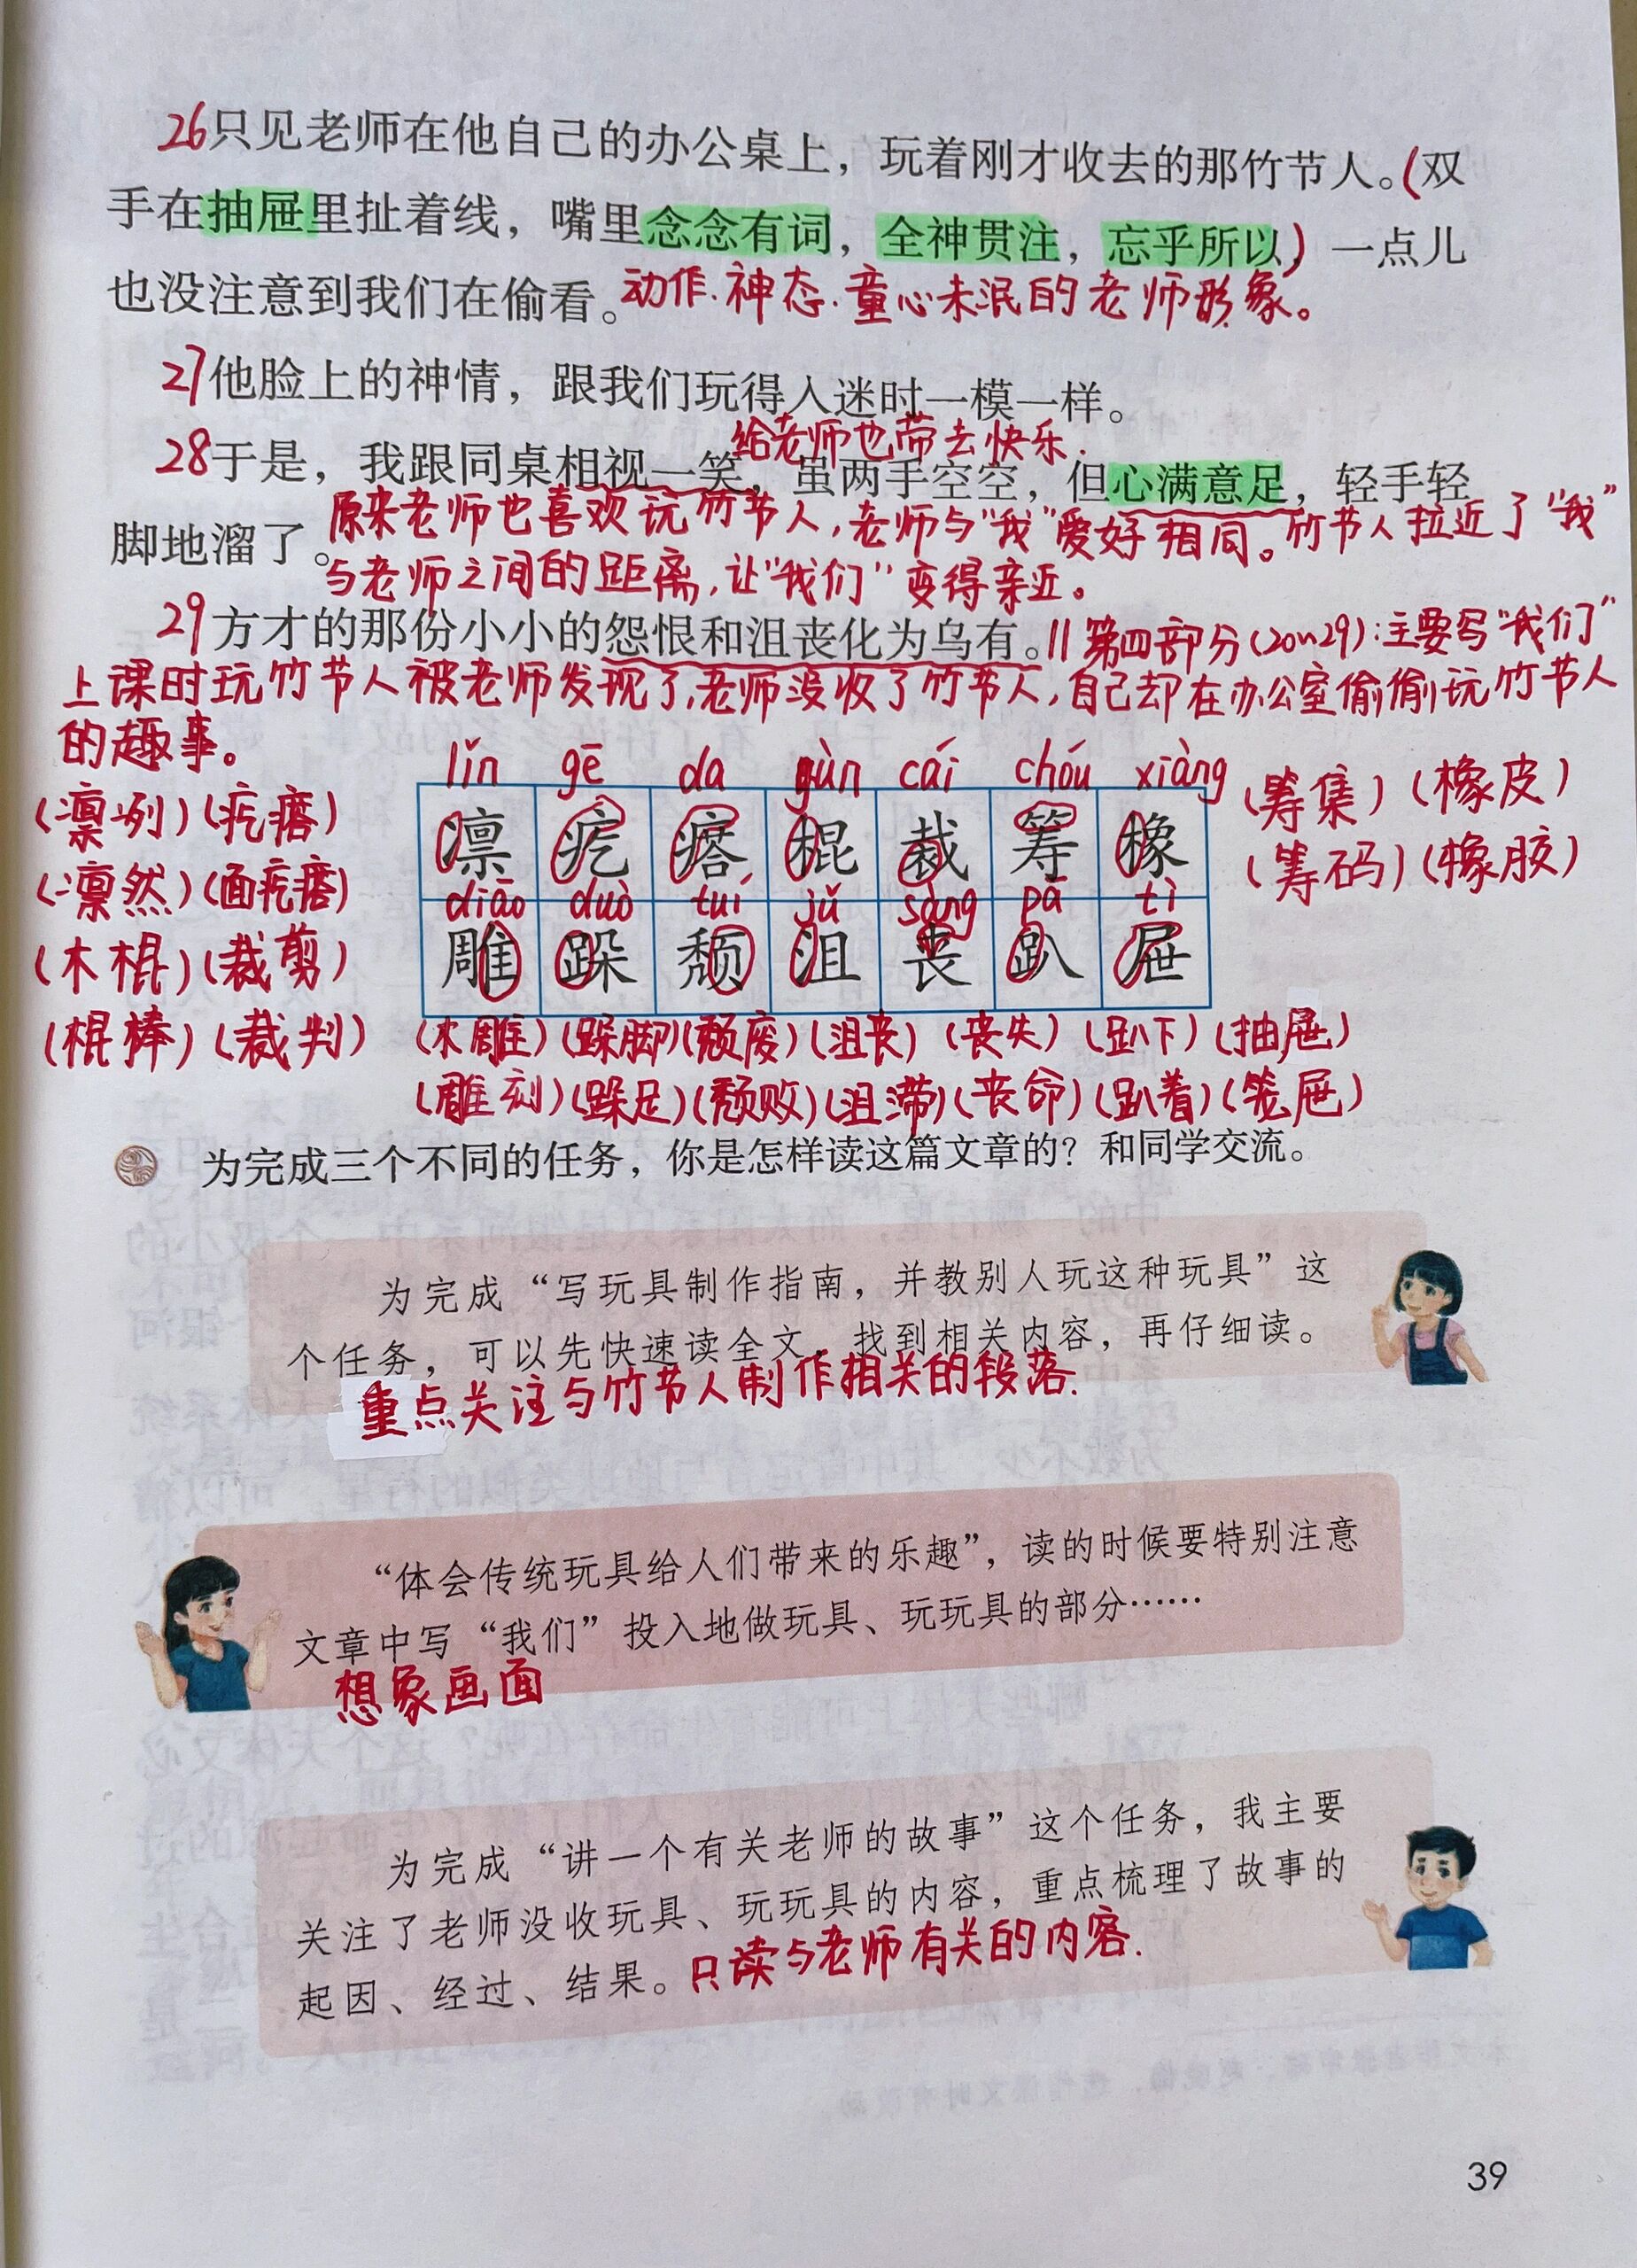 26只见老师在他自己的办公桌上，玩着刚才收去的那竹节人。(双
手在抽屉里扯着线，嘴里念念有词，全神贯注，忘乎所以)，一点儿
也没注意到我们在偷看。动作.神态.童心未泯的老师形象。
27他脸上的神情，跟我们玩得入迷时一模一样。
给老师也带去快乐.
28于是，我跟同桌相视一笑，虽两手空空，但心满意足，轻手轻
脚地溜了。原来老师也喜欢玩竹节人,老师与"我"爱好相同。竹节人拉近了"我"
与老师之间的距离,让"我们"变得亲近。
29方才的那份小小的怨恨和沮丧化为乌有。||第四部分(20~29):主要写"我们"
上课时玩竹节人被老师发现了,老师没收了竹节人,自己却在办公室偷偷玩竹节人
的趣事。
lǐn gē da gùn cái chóu xiàng
凛 疙 瘩 棍 裁 筹 橡
diāo duò tuí jǔ sàng pā tì
雕 跺 颓 沮 丧 趴 屉
(凛冽)(疙瘩)
(凛然)(面疙瘩)
(木棍)(裁剪)
(棍棒)(裁判)
(筹集)(橡皮)
(筹码)(橡胶)
(木雕)(跺脚)(颓废)(沮丧)(丧失)(趴下)(抽屉)
(雕刻)(跺足)(颓败)(沮滞)(丧命)(趴着)(笼屉)
为完成三个不同的任务，你是怎样读这篇文章的？和同学交流。
为完成“写玩具制作指南，并教别人玩这种玩具”这
个任务，可以先快速读全文，找到相关内容，再仔细读。
重点关注与竹节人制作相关的段落.
“体会传统玩具给人们带来的乐趣”，读的时候要特别注意
文章中写“我们”投入地做玩具、玩玩具的部分……
想象画面
为完成“讲一个有关老师的故事”这个任务，我主要
关注了老师没收玩具、玩玩具的内容，重点梳理了故事的
起因、经过、结果。只读与老师有关的内容.
39